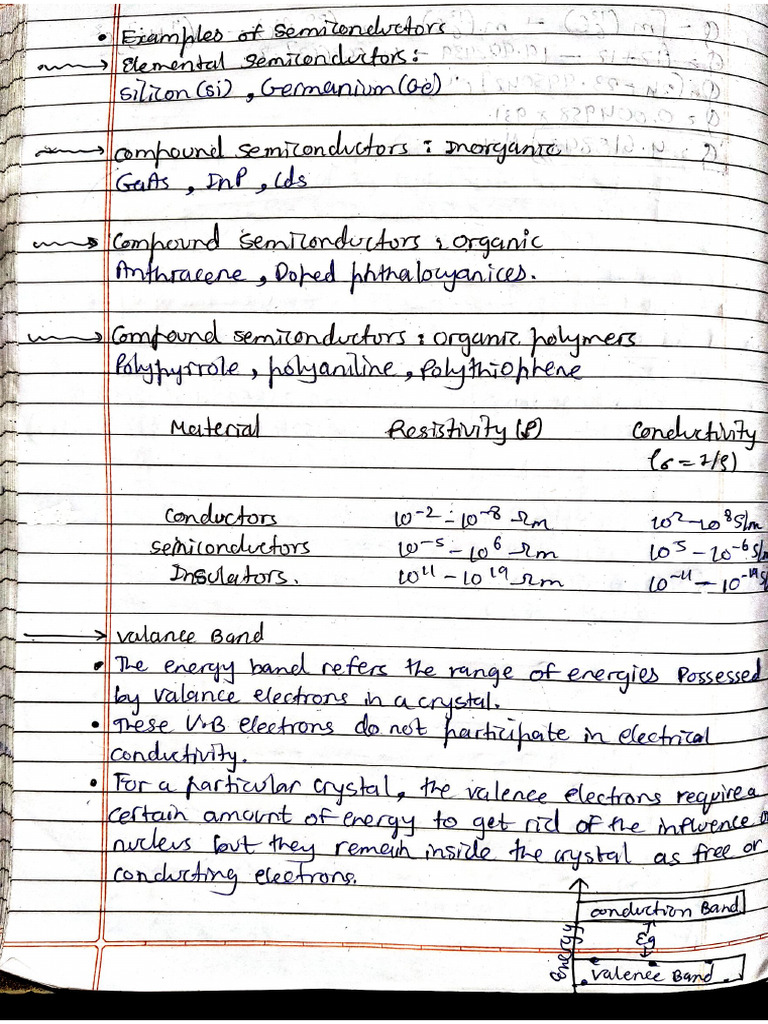 • Examples of semiconductors
→ Elemental semiconductors:-
Silicon(si), Germanium(Ge)
→ compound semiconductors : Inorganic
GaAs, InP, Cds
→ Compound semiconductors : organic
Anthracene, Doped phthalocyanices.
→ Compound semiconductors : organic polymers
Polypyrrole, polyaniline, Polythiophene
Material Resistivity (ρ) Conductivity
(σ = 1/ρ)
conductors 10⁻² - 10⁻⁸ Ωm 10² - 10⁸ S/m
semiconductors 10⁻⁵ - 10⁶ Ωm 10⁵ - 10⁻⁶ S/m
Insulators. 10¹¹ - 10¹⁹ Ωm 10⁻¹¹ - 10⁻¹⁹ S/
→ valance Band
• The energy band refers the range of energies Possessed
by valance electrons in a crystal.
• These V.B electrons do not participate in electrical
conductivity.
• For a particular crystal, the valence electrons require a
certain amount of energy to get rid of the influence
nucleus but they remain inside the crystal as free or
conducting electrons.
conduction Band
Energy
Eg
Valence Band